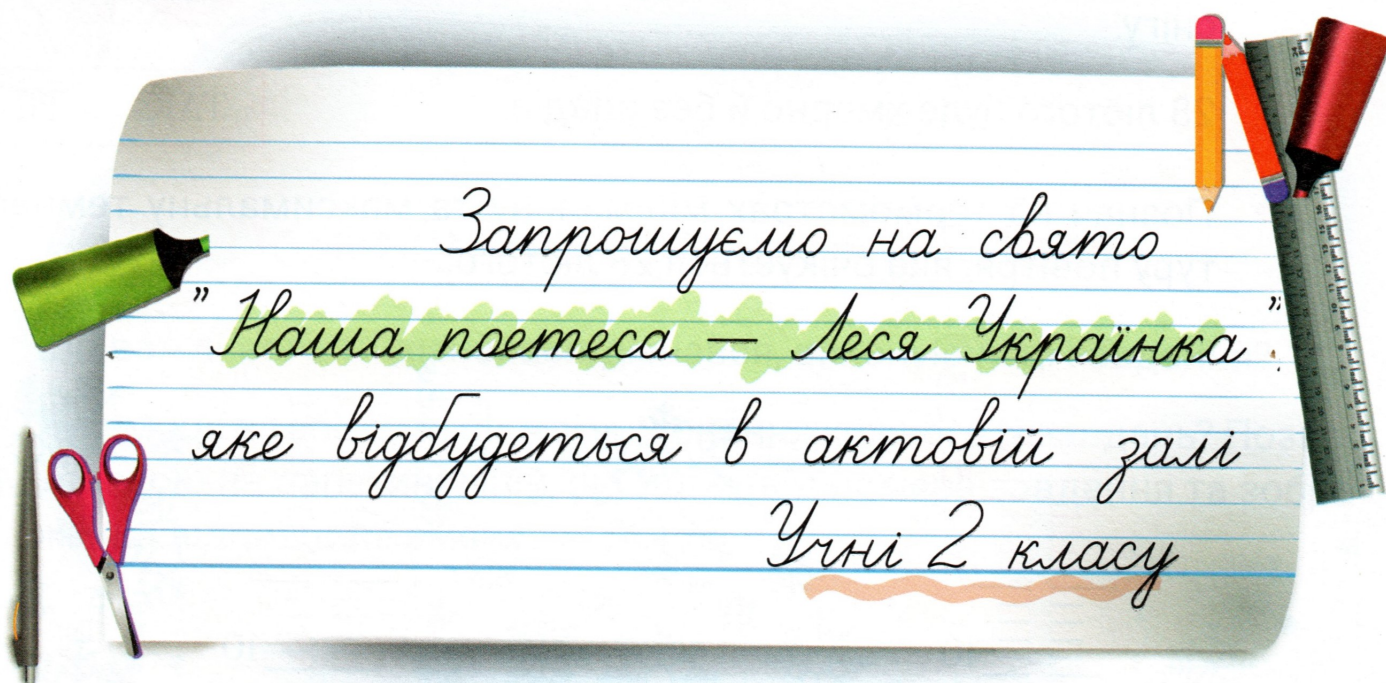 Запрошуємо на свято
"Наша поетеса — Леся Українка",
яке відбудеться в актовій залі
Учні 2 класу